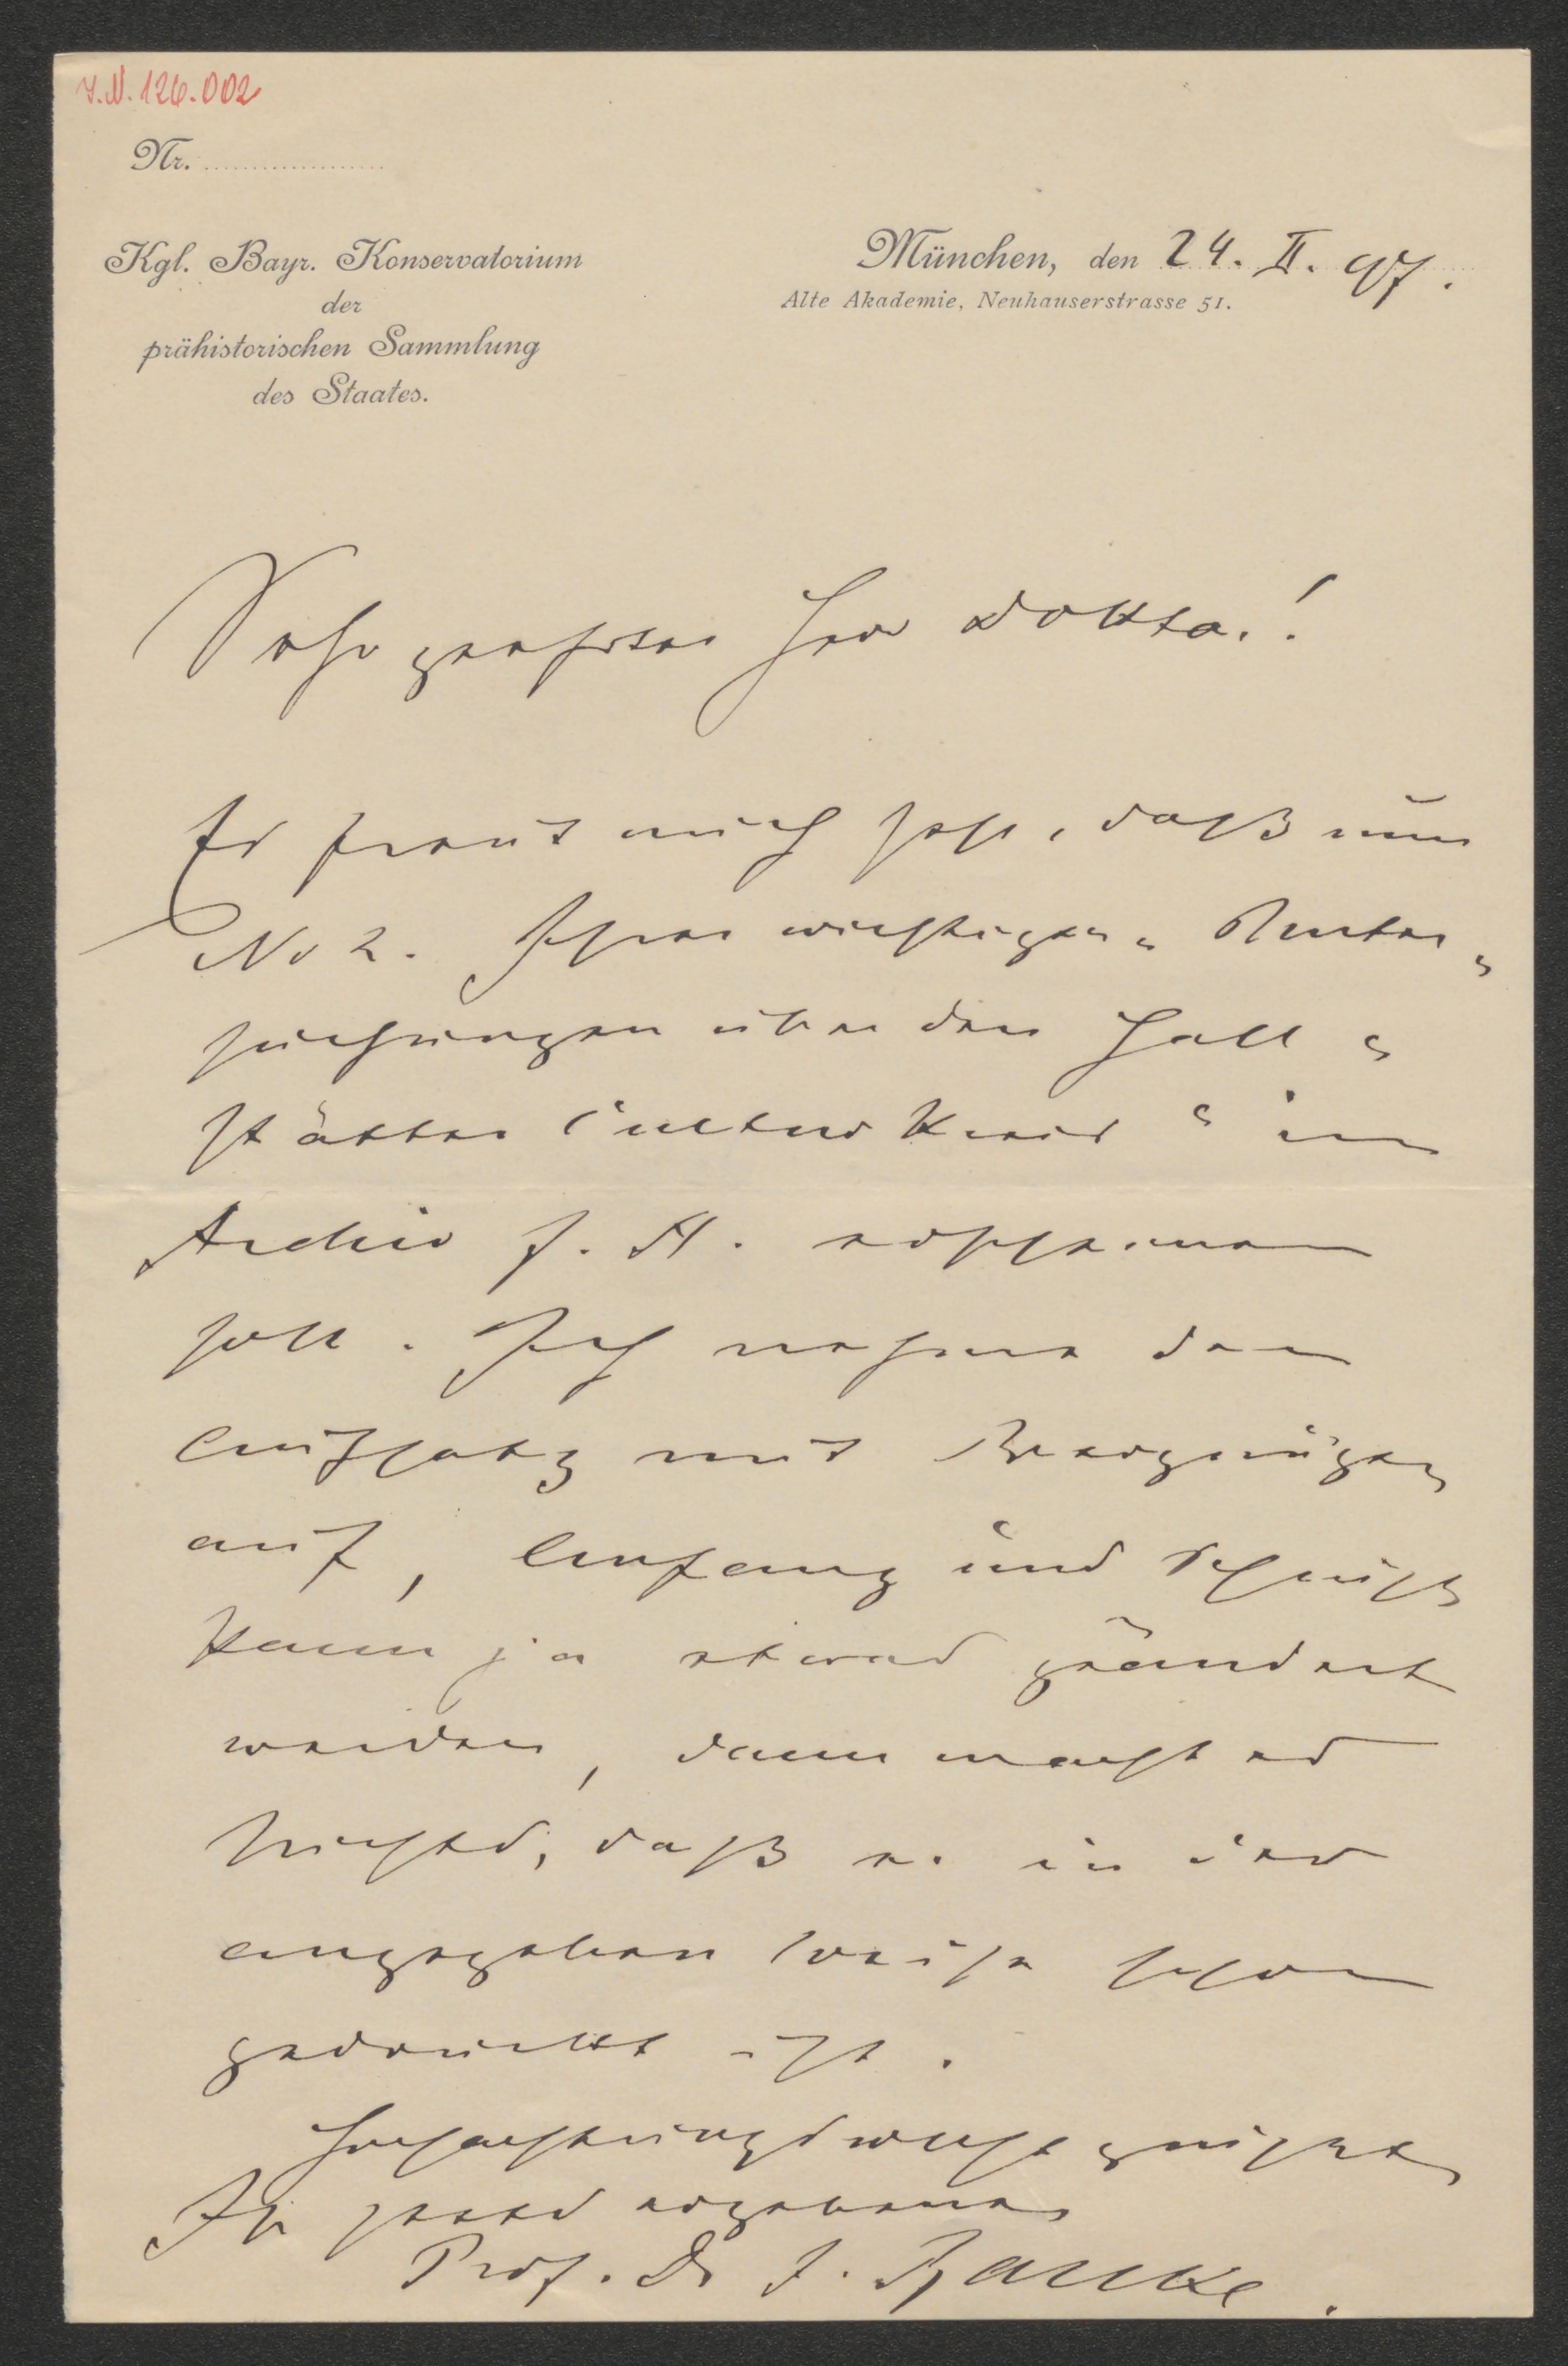 I.N. 126.002
Nr.
Kgl. Bayr. Konservatorium
der
prähistorischen Sammlung
des Staates.
München, den 24. II. 97.
Alte Akademie, Neuhauserstrasse 51.
Sehr geehrter Herr Doktor!
Es freut mich sehr, daß nun
No 2. Ihrer wichtigen „Unter-
suchungen über den Hall-
stätter Culturkreis“ im
Archiv f. A. erscheinen
soll. Ich nehme den
Aufsatz mit Vergnügen
auf, Anfang und Schluß
kann ja etwas geändert
werden, dann macht es
Nichts, daß er in der
angegeben Weise schon
gedruckt ist.
Hochachtungsvollst grüßt
Ihr stets ergebener
Prof. Dr J. Ranke.